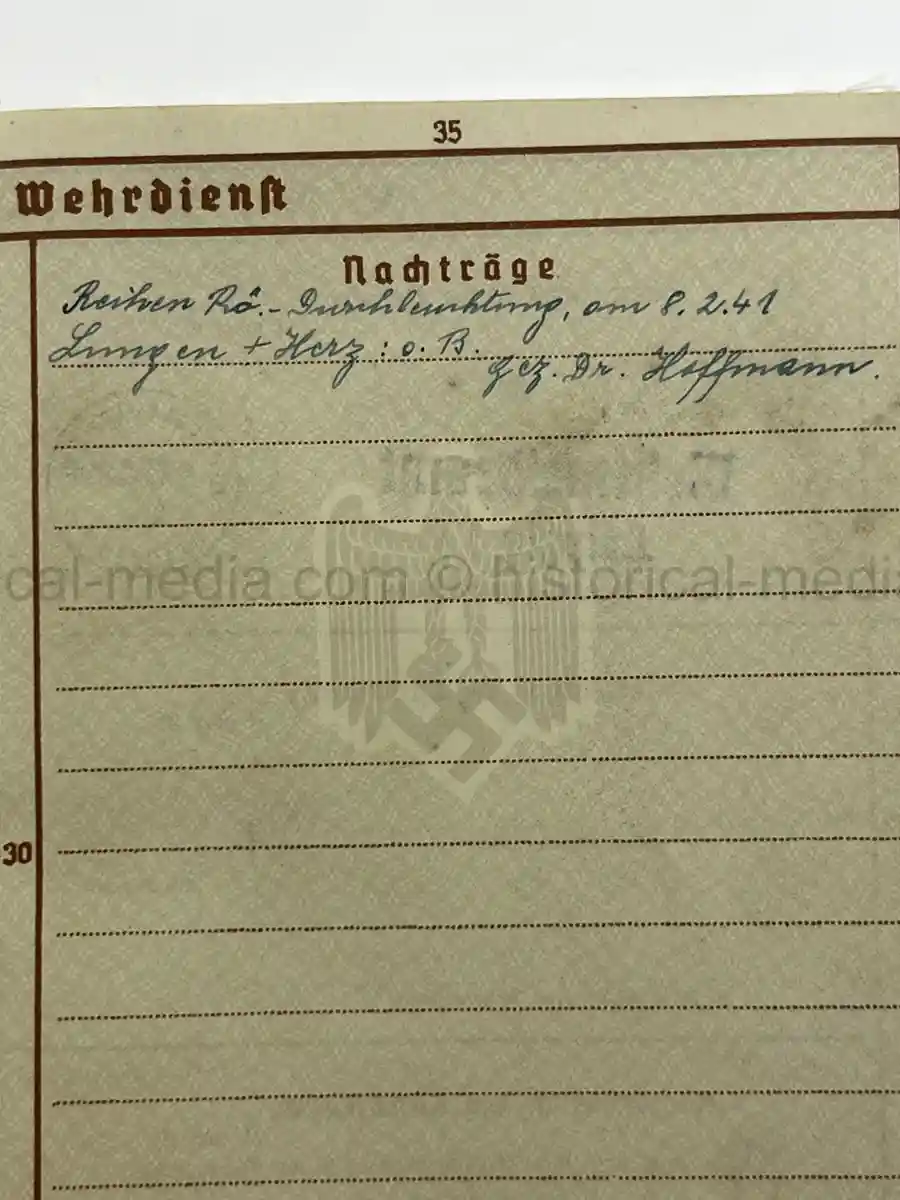 35
Wehrdienst
Nachträge
Reihen Rö.-Durchleuchtung, am 8.2.41
Lungen + Herz : o. B.
gez. Dr. Hoffmann.
cal-media.com © historical-medi
30